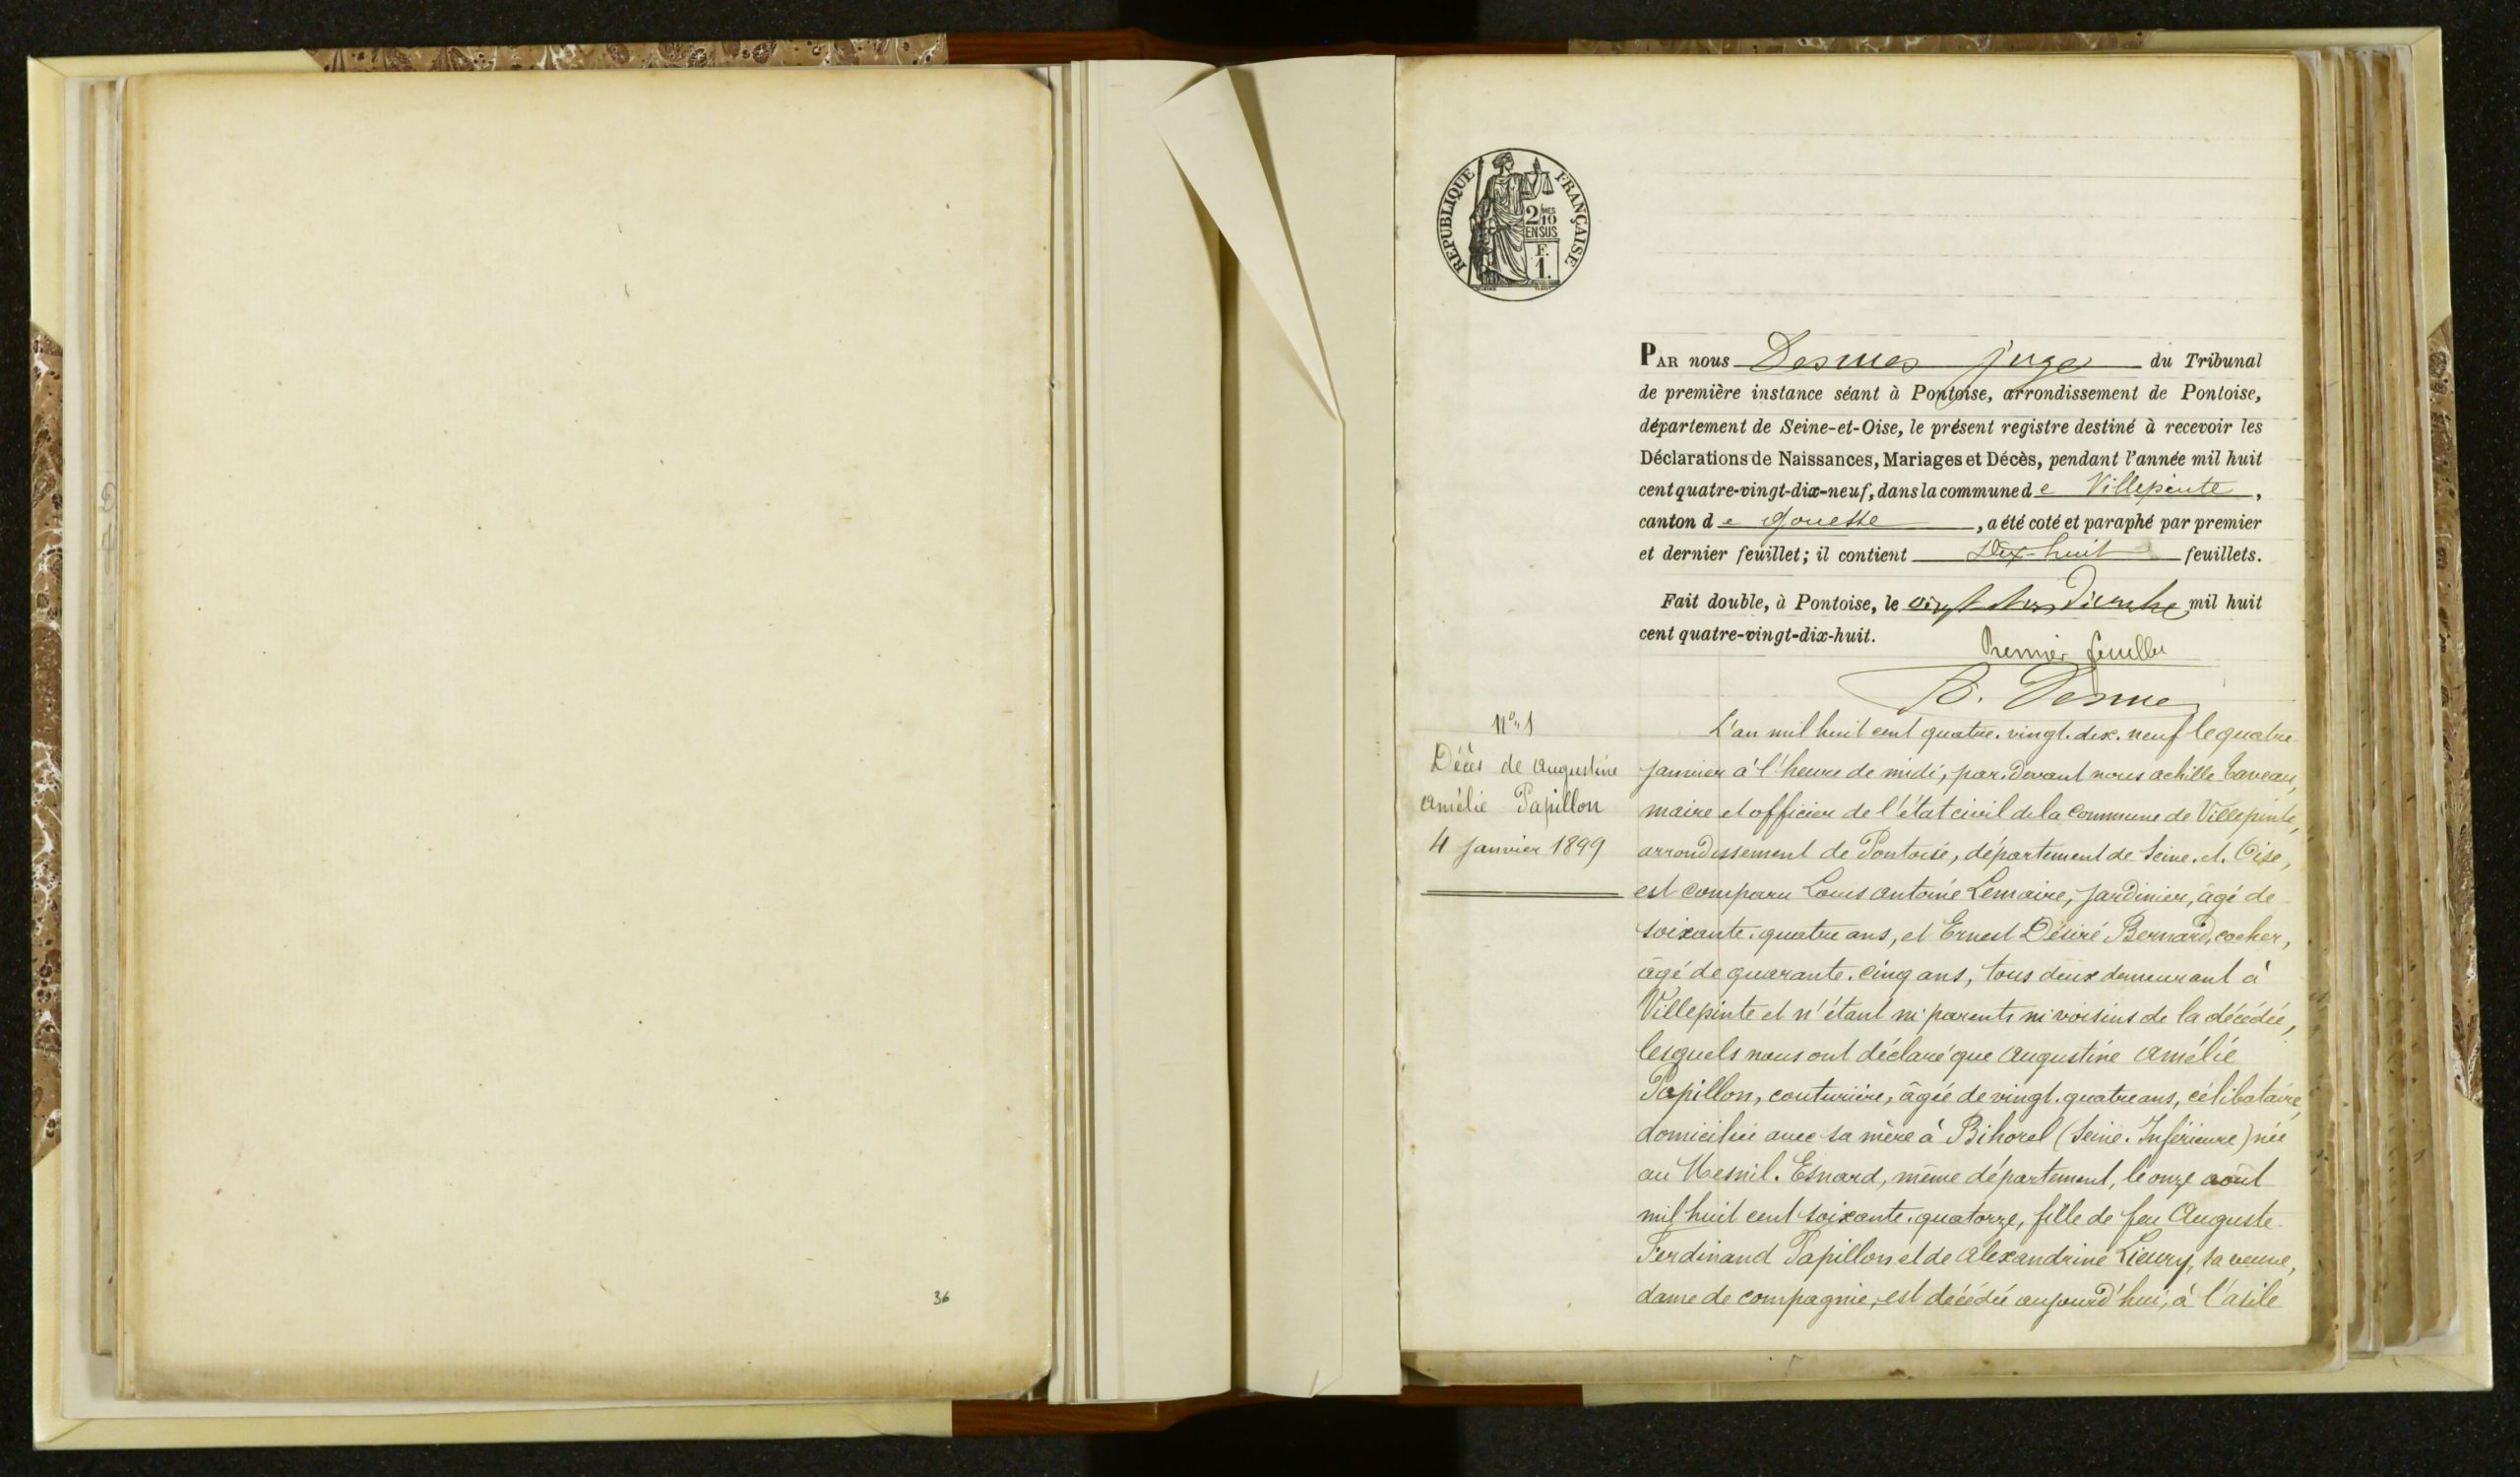 36
RÉPUBLIQUE FRANÇAISE
2/10 MES
EN SUS
F.
1.
PAR nous Desmes juge du Tribunal
de première instance séant à Pontoise, arrondissement de Pontoise,
département de Seine-et-Oise, le présent registre destiné à recevoir les
Déclarations de Naissances, Mariages et Décès, pendant l'année mil huit
cent quatre-vingt-dix-neuf, dans la commune de Villepinte,
canton de Gonesse, a été coté et paraphé par premier
et dernier feuillet; il contient Dix-huit feuillets.
Fait double, à Pontoise, le vingt décembre mil huit
cent quatre-vingt-dix-huit.
Premier feuillet
N° 1
Décès de Augustine
Amélie Papillon
4 Janvier 1899
L'an mil huit cent quatre-vingt-dix-neuf le quatre
Janvier à l'heure de midi, par-devant nous Achille
maire et officier de l'état civil de la commune de Villepinte,
arrondissement de Pontoise, département de Seine-et-Oise,
est comparu Louis Antoine Lemaire, jardinier, âgé de
soixante-quatre ans, et Ernest Désiré Bernard, cocher,
âgé de quarante-cinq ans, tous deux demeurant à
Villepinte et n'étant ni parents ni voisins de la décédée,
lesquels nous ont déclaré que Augustine Amélie
Papillon, couturière, âgée de vingt-quatre ans, célibataire,
domiciliée avec sa mère à Bihorel (Seine-Inférieure) née
au Mesnil-Esnard, même département, le onze août
mil huit cent soixante-quatorze, fille de feu Auguste
Ferdinand Papillon et de Alexandrine Lieury, sa veuve,
dame de compagnie, est décédée aujourd'hui, à l'asile